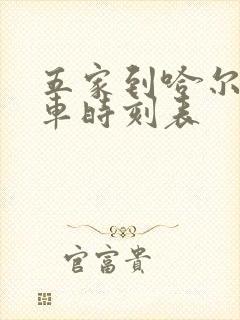 五家到哈尔
車時刻表
官富貴